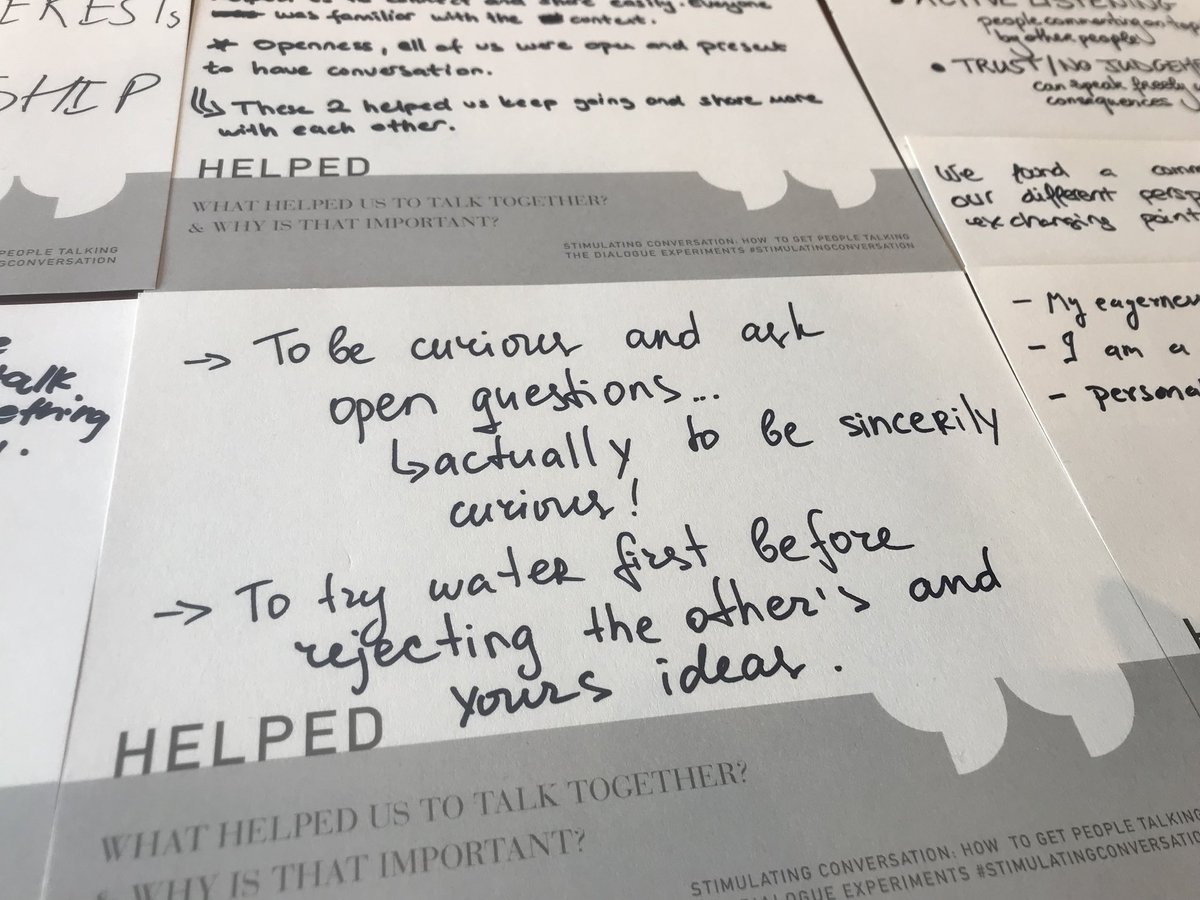 SHIP
PEOPLE TALKING
was familiar with the context.
* Openness, all of us were open and present
to have conversation.
These 2 helped us keep going and share more
with each other.
HELPED
WHAT HELPED US TO TALK TOGETHER?
& WHY IS THAT IMPORTANT?
STIMULATING CONVERSATION: HOW TO GET PEOPLE TALKING
THE DIALOGUE EXPERIMENTS #STIMULATINGCONVERSATION
• ACTIVE LISTENING
people commenting on
by other people
• TRUST/NO
can speak freely
consequences
We found a
our different
exchanging
- My
- I am a
-
talk
→ To be curious and ask
open questions...
↳actually to be sincerily
curious!
→ To try water first before
rejecting the other's and
yours ideas.
HELPED
WHAT HELPED US TO TALK TOGETHER?
& WHY IS THAT IMPORTANT?
STIMULATING CONVERSATION: HOW TO GET PEOPLE TALKING
EXPERIMENTS